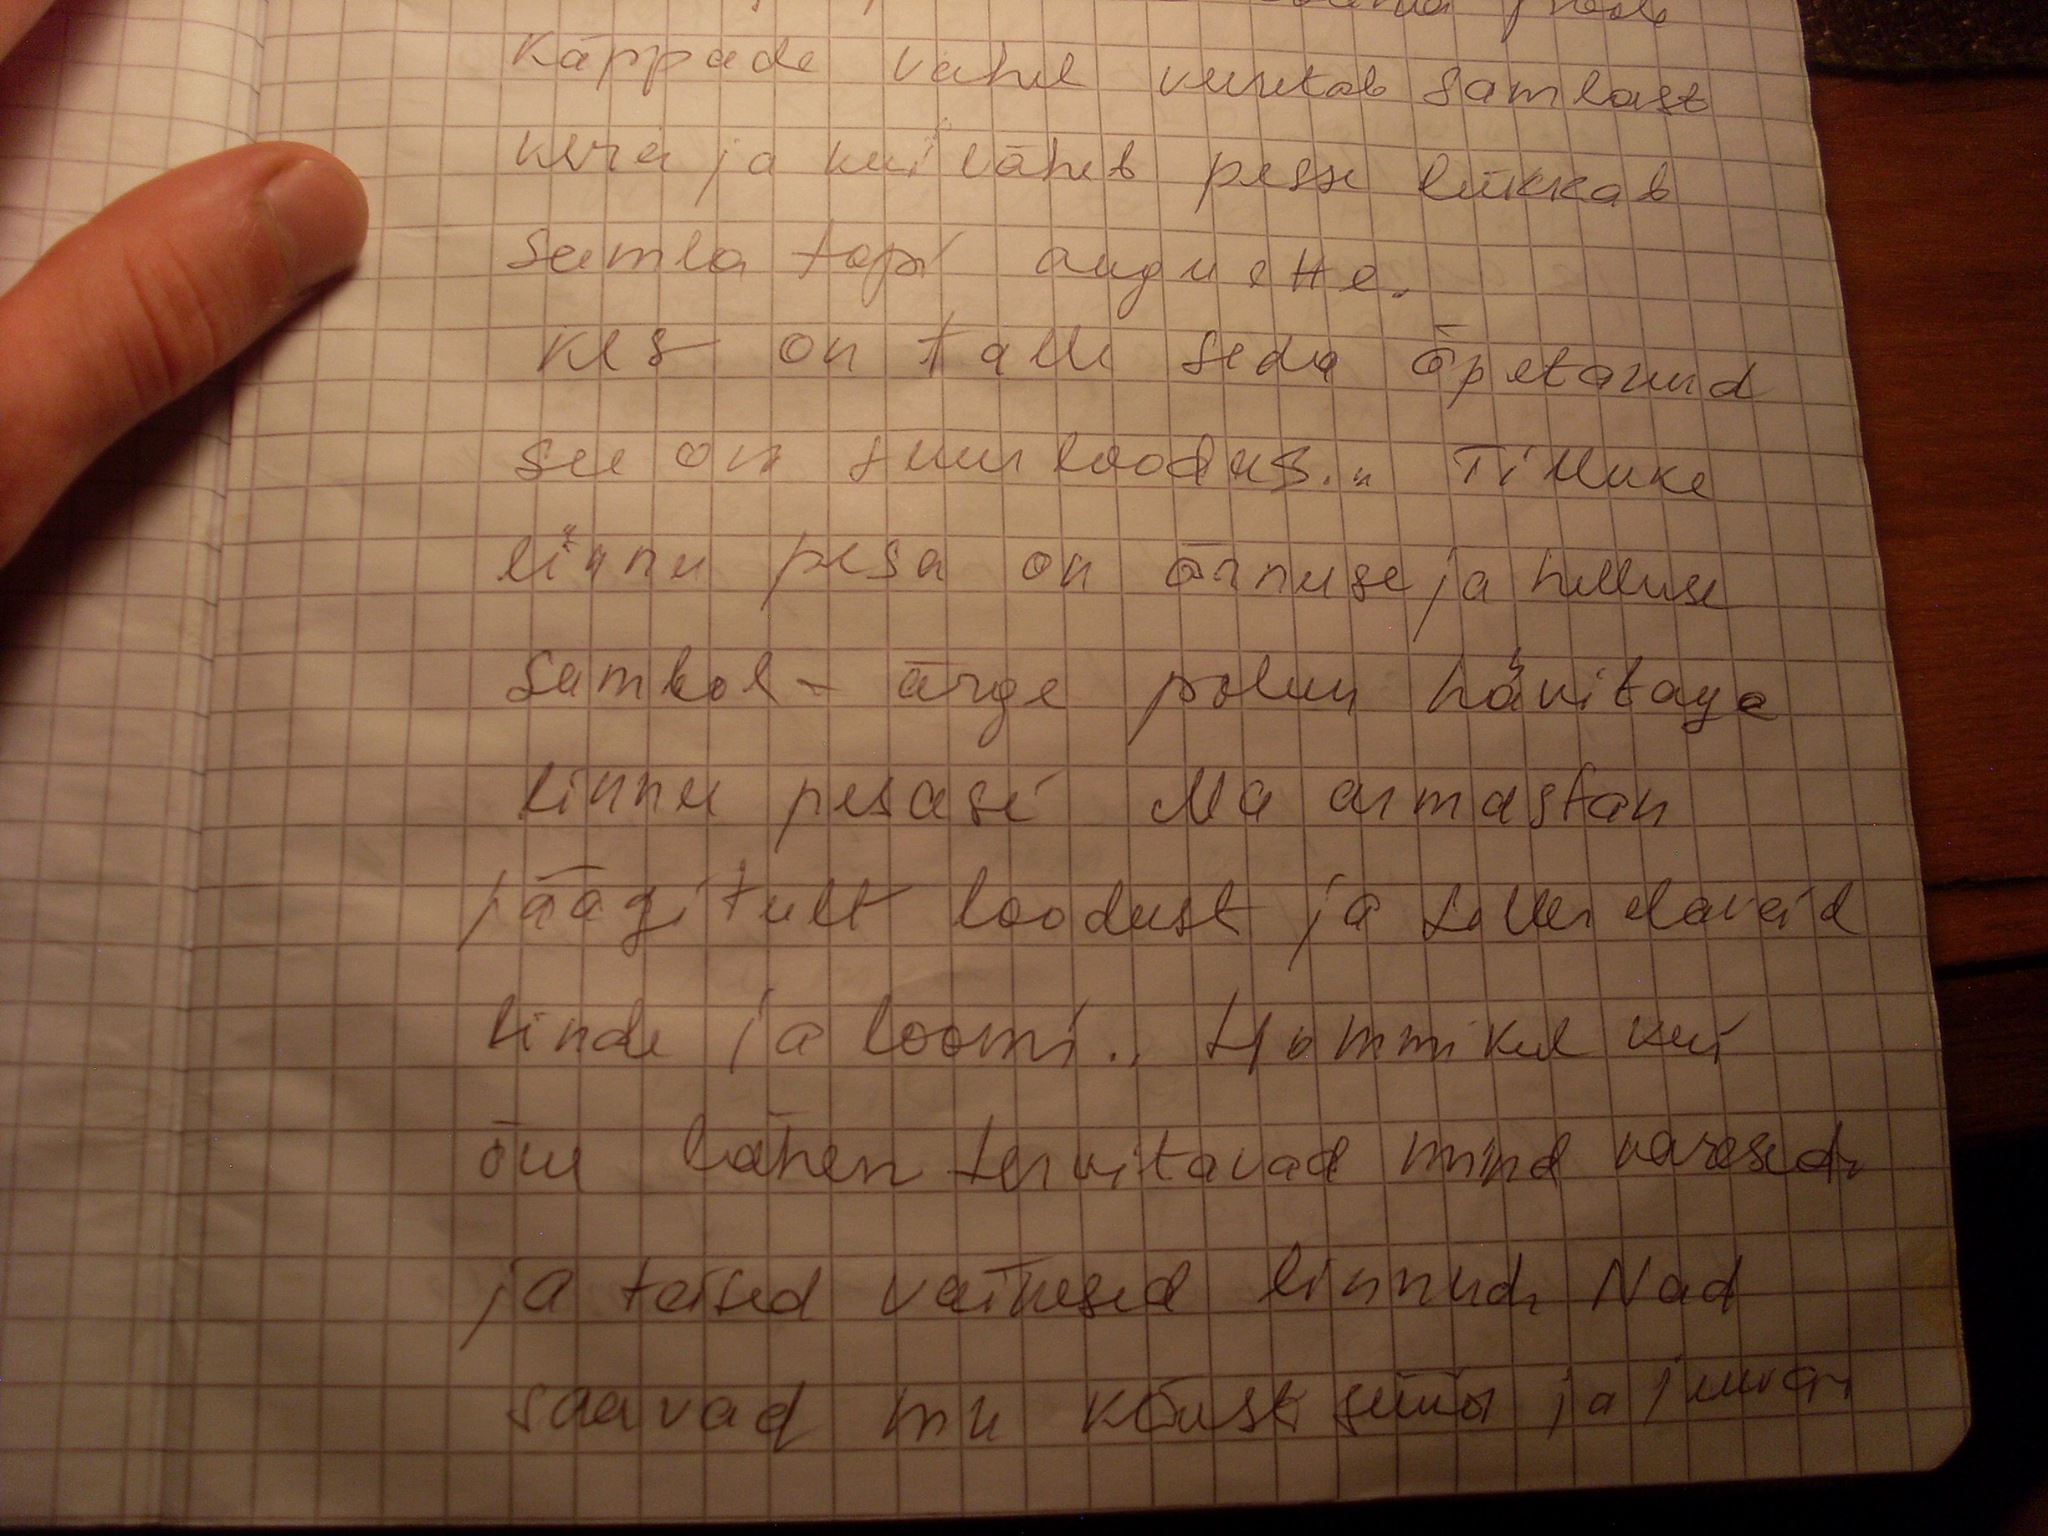 Käppade vahel veeretab samlast
kera ja kui läheb pessa lükkab
samla topi augu ette.
Kes on talle seda õpetanud
see on suur loodus.. Tilluke
linnu pesa on õrnuse ja helluse
sambol - ärge palun hävitage
linnu pesasi Ma armastan
jäägitult loodust ja selles elavaid
linde ja loomi.. Hommikul kui
õue lähen tervitavad mind varesed,
ja teised väikesed linnud, Nad
saavad mu käest süüa ja juua,